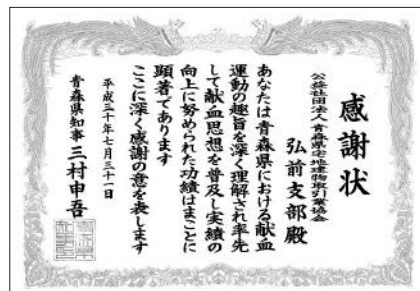 感謝状
公益社団法人青森県宅地建物取引業協会
弘前支部殿
あなたは青森県における献血
運動の趣旨を深く理解され率先
して献血思想を普及し実績の
向上に努められた功績はまことに
顕著であります
ここに深く感謝の意を表します
平成三十年七月三十一日
青森県知事 三村申吾